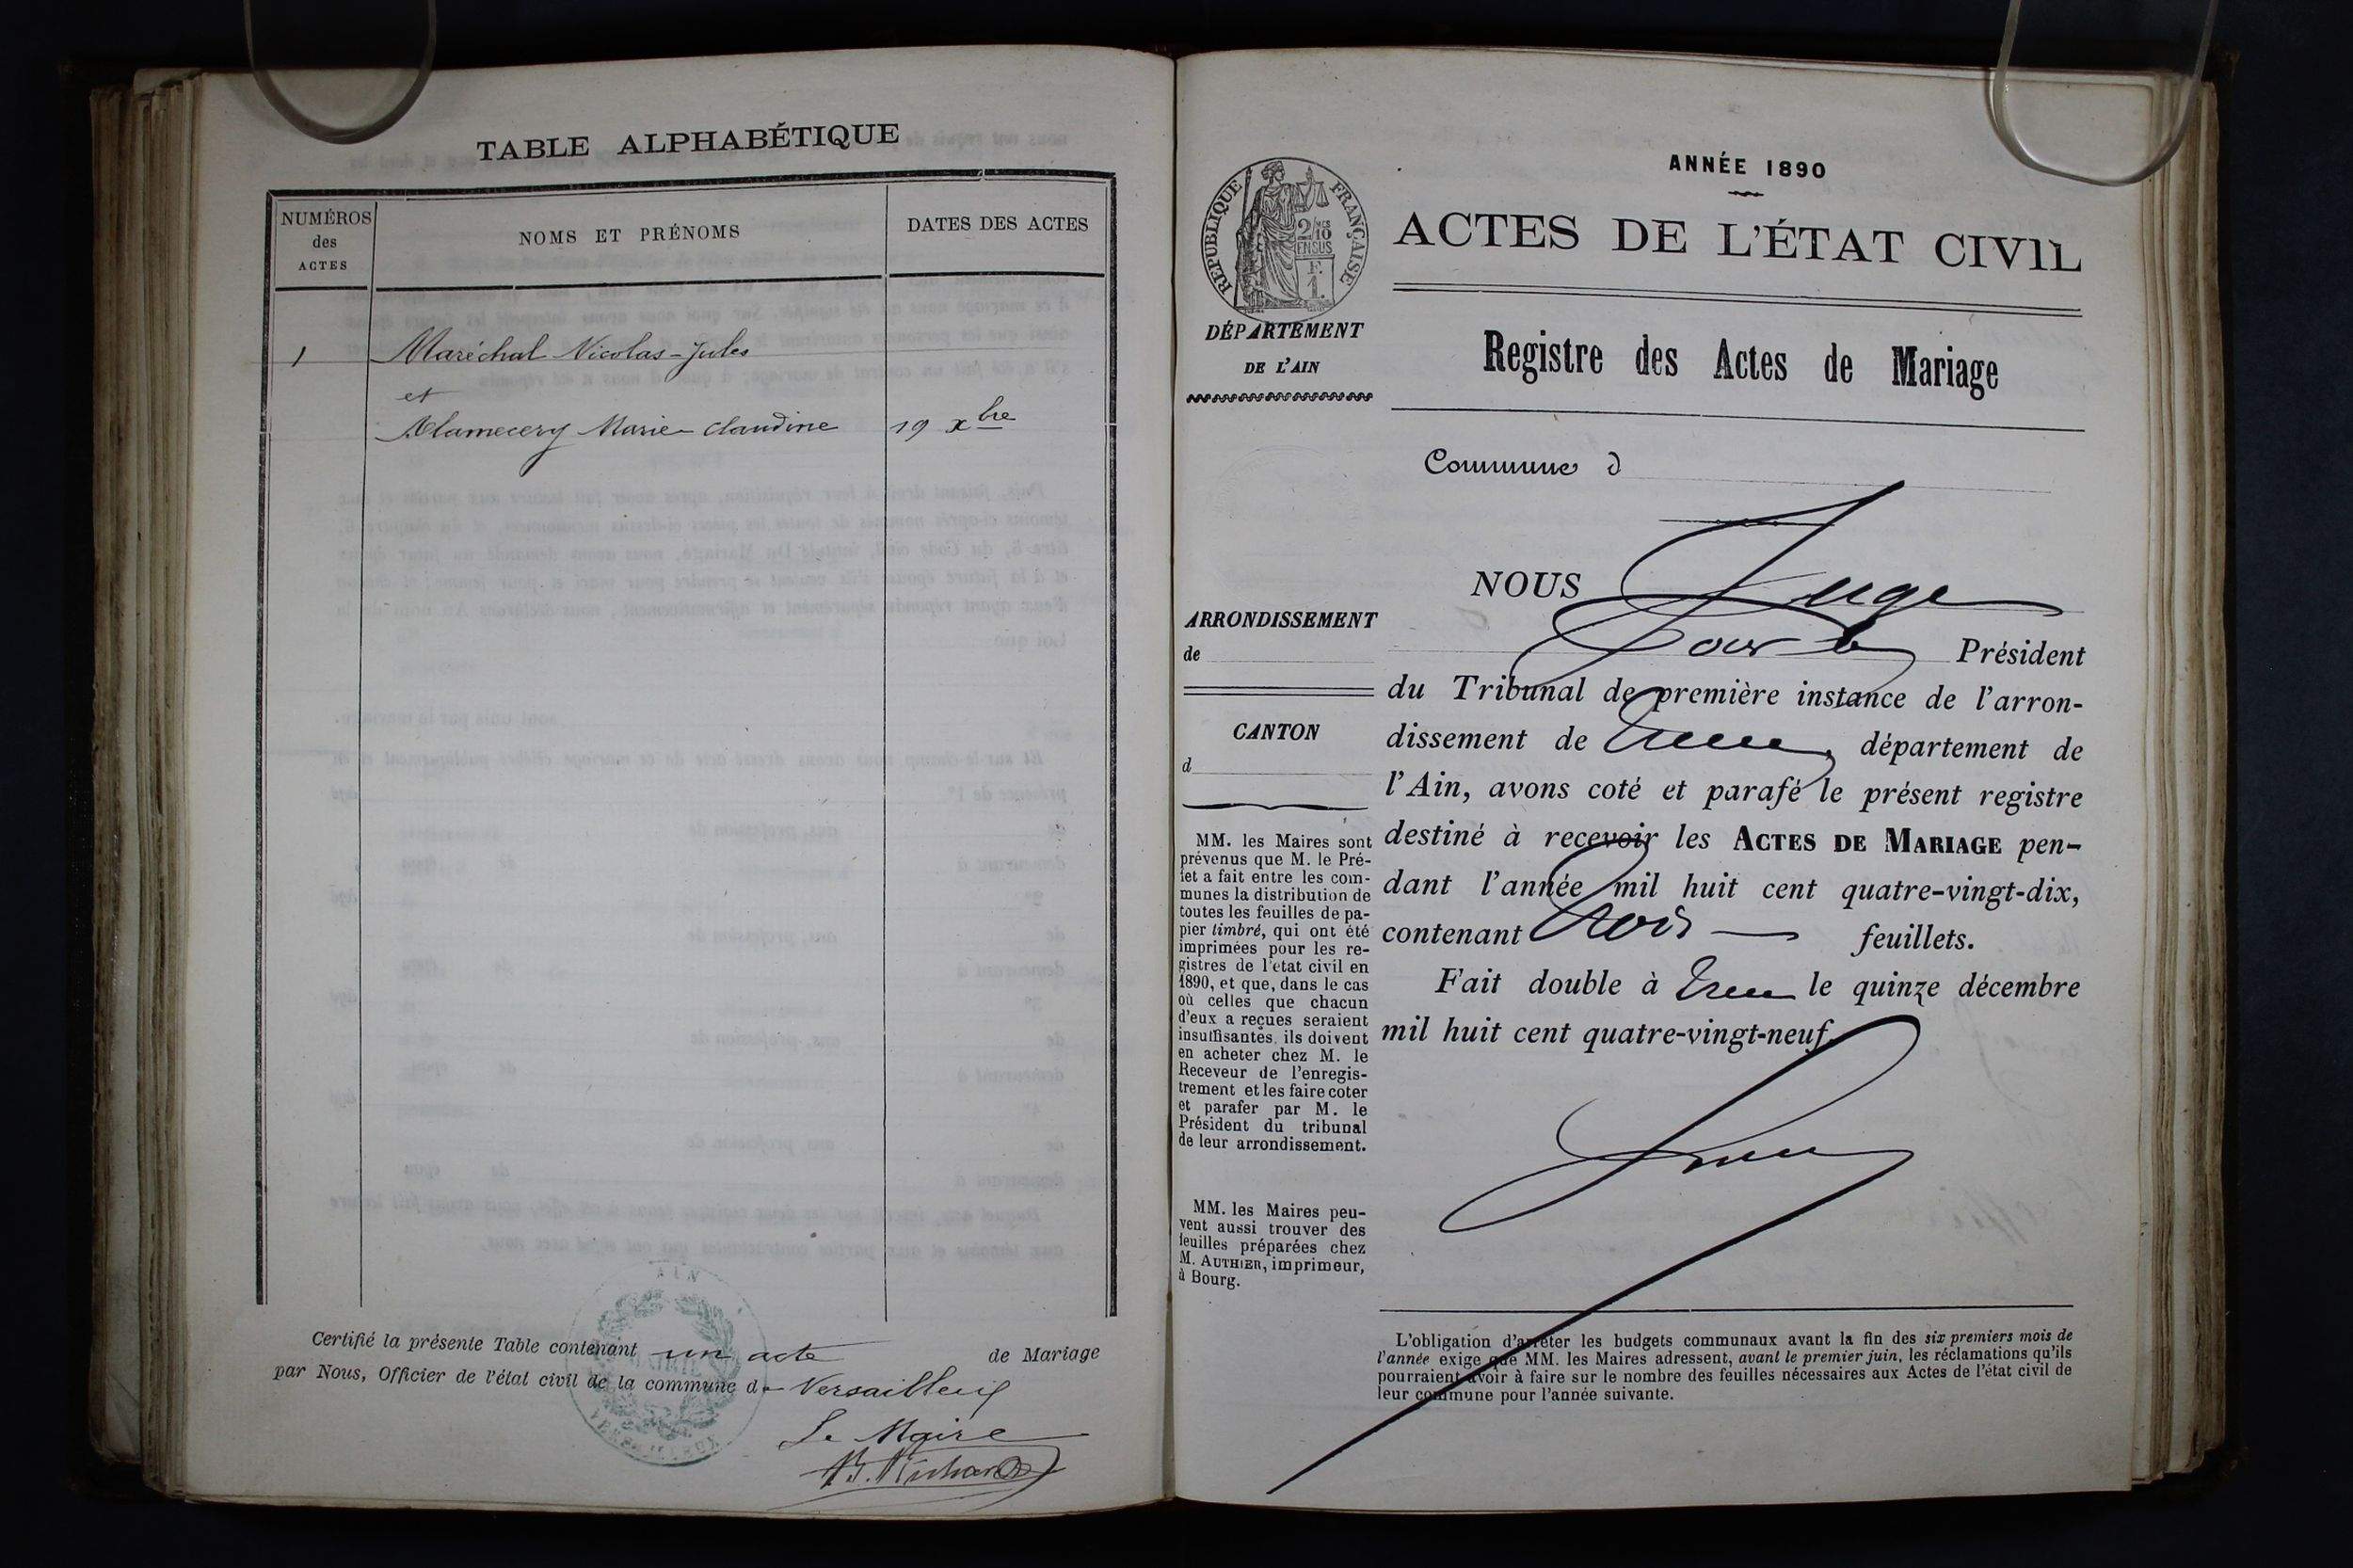 TABLE ALPHABÉTIQUE
NUMÉROS
des
ACTES
NOMS ET PRÉNOMS
DATES DES ACTES
1
Maréchal Nicolas-Jules
et
Marie-claudine
19 xbre
Certifié la présente Table contenant un acte de Mariage
par Nous, Officier de l'état civil de la commune de Versailleux
Le Maire
AIN
MAIRIE
RÉPUBLIQUE FRANÇAISE
2/10
EN SUS
F.
1.
DÉPARTEMENT
DE L'AIN
ARRONDISSEMENT
de
CANTON
d
MM. les Maires sont
prévenus que M. le Pré-
fet a fait entre les com-
munes la distribution de
toutes les feuilles de pa-
pier timbré, qui ont été
imprimées pour les re-
gistres de l'état civil en
1890, et que, dans le cas
où celles que chacun
d'eux a reçues seraient
insuffisantes, ils doivent
en acheter chez M. le
Receveur de l'enregis-
trement et les faire coter
et parafer par M. le
Président du tribunal
de leur arrondissement.
MM. les Maires peu-
vent aussi trouver des
feuilles préparées chez
M. AUTHIER, imprimeur,
à Bourg.
ANNÉE 1890
ACTES DE L'ÉTAT CIVIL
Registre des Actes de Mariage
Commune d
NOUS Juge
pour le Président
du Tribunal de première instance de l'arron-
dissement de Trévoux, département de
l'Ain, avons coté et parafé le présent registre
destiné à recevoir les ACTES DE MARIAGE pen-
dant l'année mil huit cent quatre-vingt-dix,
contenant trois feuillets.
Fait double à Trévoux le quinze décembre
mil huit cent quatre-vingt-neuf.
L'obligation d'arrêter les budgets communaux avant la fin des six premiers mois de
l'année exige que MM. les Maires adressent, avant le premier juin, les réclamations qu'ils
pourraient avoir à faire sur le nombre des feuilles nécessaires aux Actes de l'état civil de
leur commune pour l'année suivante.